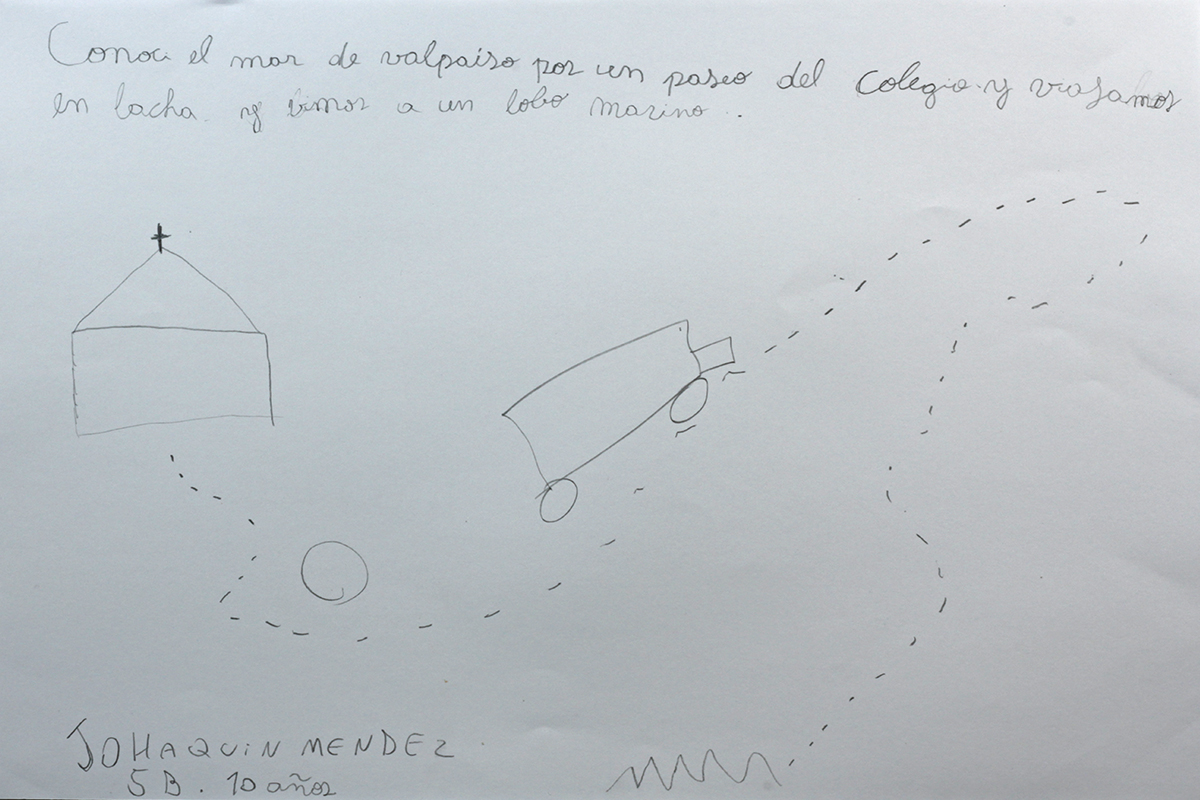 Conoci el mar de valpaiso por un paseo del colegio y viajamos
en lacha y bimos a un lobo marino..
JOHAQUIN MENDEZ
5B. 10 años